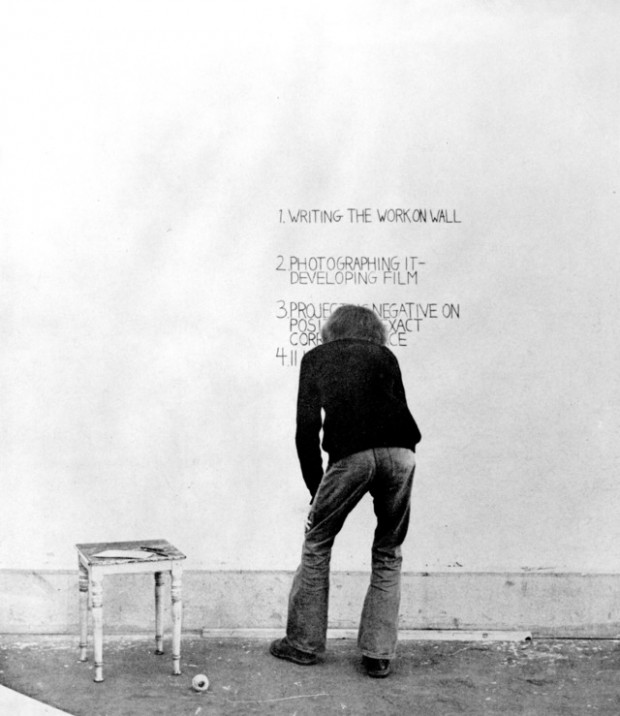 1. WRITING THE WORK ON WALL
2. PHOTOGRAPHING IT-
DEVELOPING FILM
3 NEGATIVE ON
EXACT
4.